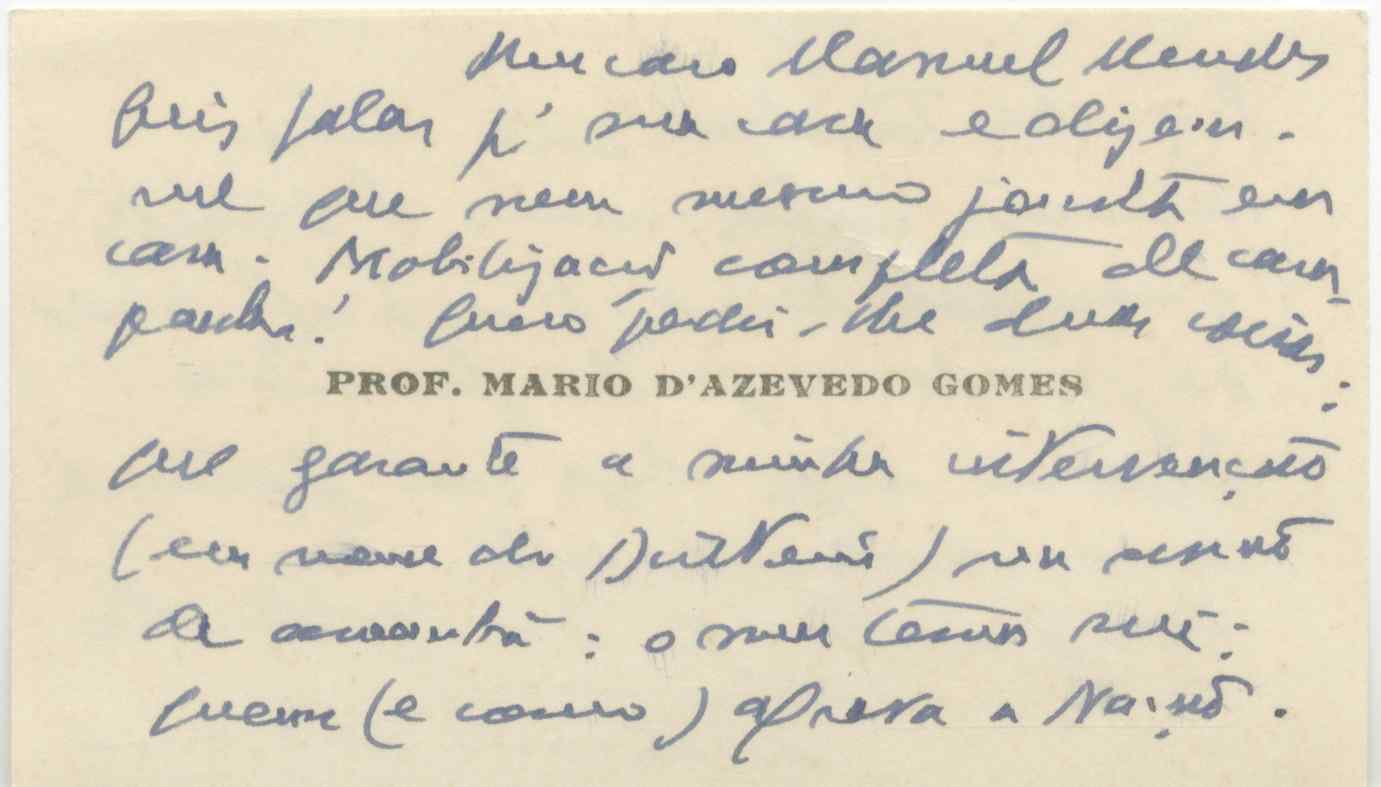 Meu caro Manuel Mendes
Quis falar p'ª sua casa e dizem-
me que nem mesmo janta em
casa. Mobilização completa de cam-
panha! Quero pedir-lhe duas coisas:
PROF. MARIO D'AZEVEDO GOMES
que garanta a minha intervenção
(em nome do) na sessão
de amanhã: o meu tema será:
quem (e como) afronta a Nação.